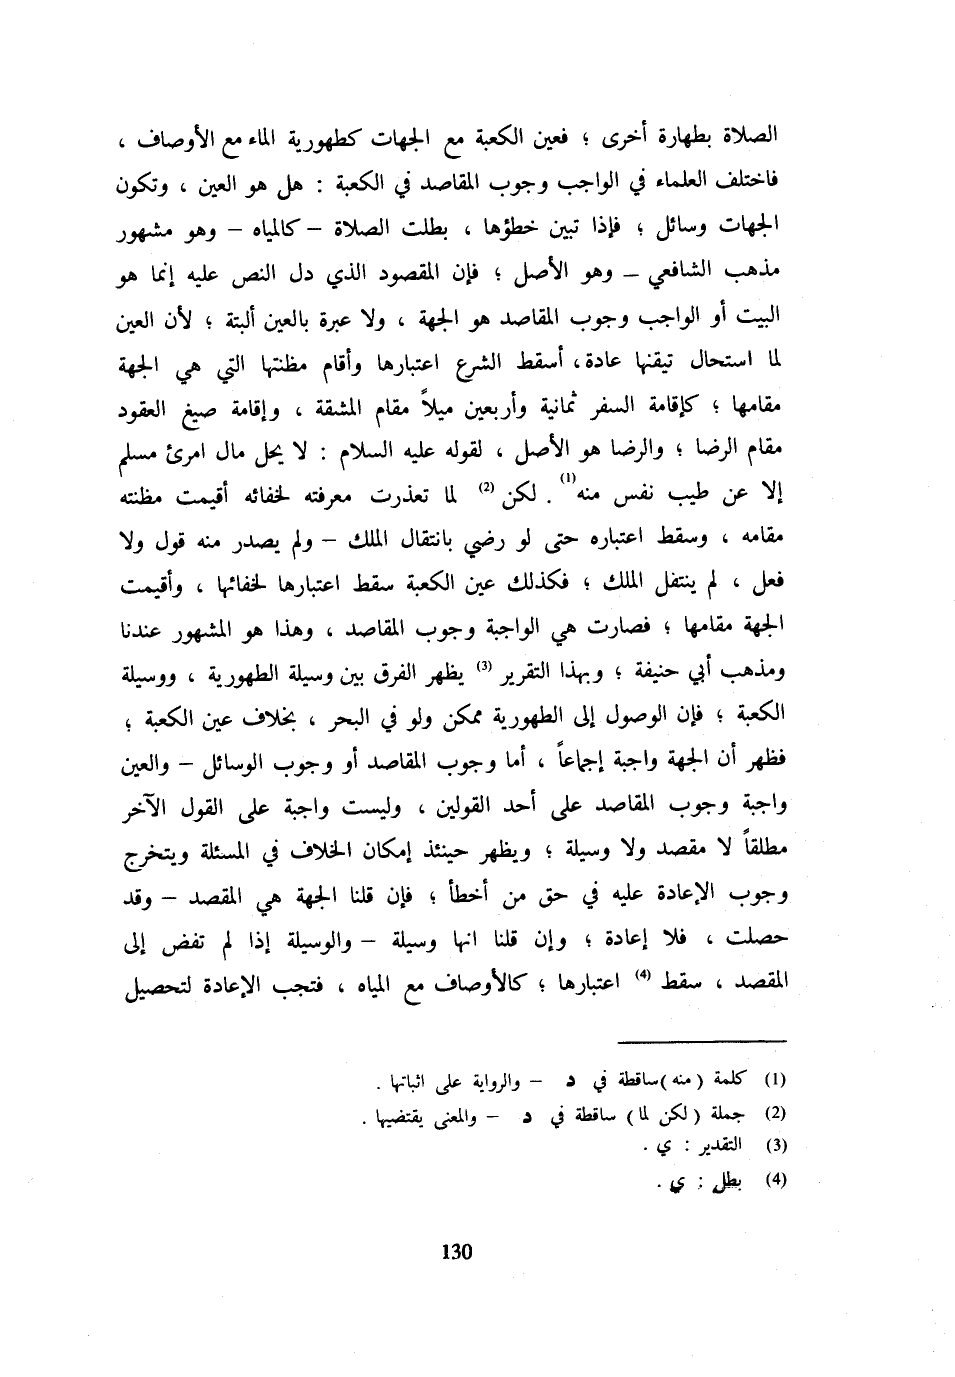 الصلاة بطهارة أخرى ؛ فعين الكعبة مع الجهات كطهورية الماء مع الأوصاف ،
فاختلف العلماء في الواجب وجوب المقاصد في الكعبة : هل هو العين ، وتكون
الجهات وسائل ؛ فإذا تبين خطؤها ، بطلت الصلاة – كالمياه – وهو مشهور
مذهب الشافعي – وهو الأصل ؛ فإن المقصود الذي دل النص عليه إنما هو
البيت أو الواجب وجوب المقاصد هو الجهة ، ولا عبرة بالعين ألبتة ؛ لأن العين
لما استحال تيقنها عادة، أسقط الشرع اعتبارها وأقام مظنتها التي هي الجهة
مقامها ؛ كإقامة السفر ثمانية وأربعين ميلاً مقام المشقة ، وإقامة صيغ العقود
مقام الرضا ؛ والرضا هو الأصل ، لقوله عليه السلام : لا يحل مال امرئ مسلم
إلا عن طيب نفس منه(1) . لكن (2) لما تعذرت معرفته لخفائه أقيمت مظنته
مقامه ، وسقط اعتباره حتى لو رضي بانتقال الملك – ولم يصدر منه قول ولا
فعل ، لم ينتفل الملك ؛ فكذلك عين الكعبة سقط اعتبارها لخفائها ، وأقيمت
الجهة مقامها ؛ فصارت هي الواجبة وجوب المقاصد ، وهذا هو المشهور عندنا
ومذهب أبي حنيفة ؛ وبهذا التقرير (3) يظهر الفرق بين وسيلة الطهورية ، ووسيلة
الكعبة ؛ فإن الوصول إلى الطهورية ممكن ولو في البحر ، بخلاف عين الكعبة ؛
فظهر أن الجهة واجبة إجماعاً ، أما وجوب المقاصد أو وجوب الوسائل – والعين
واجبة وجوب المقاصد على أحد القولين ، وليست واجبة على القول الآخر
مطلقاً لا مقصد ولا وسيلة ؛ ويظهر حينئذ إمكان الخلاف في المسئلة ويتخرج
وجوب الإعادة عليه في حق من أخطأ ؛ فإن قلنا الجهة هي المقصد – وقد
حصلت ، فلا إعادة ؛ وإن قلنا انها وسيلة – والوسيلة إذا لم تفض إلى
المقصد ، سقط (4) اعتبارها ؛ كالأوصاف مع المياه ، فتجب الإعادة لتحصيل
(1) كلمة (منه)ساقطة في د – والرواية على اثباتها .
(2) جملة (لكن لما) ساقطة في د – والمعنى يقتضيها .
(3) التقدير : ي .
(4) بطل : ي .
130